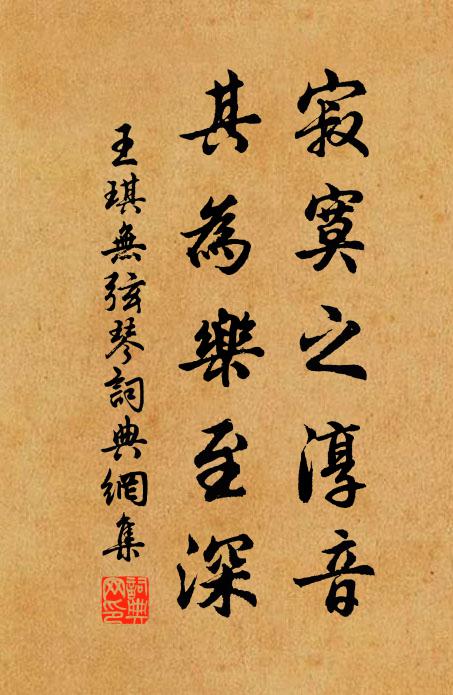 寂寞之淳音
其為樂至深
王琪無弦琴詞典網集
詞典網印